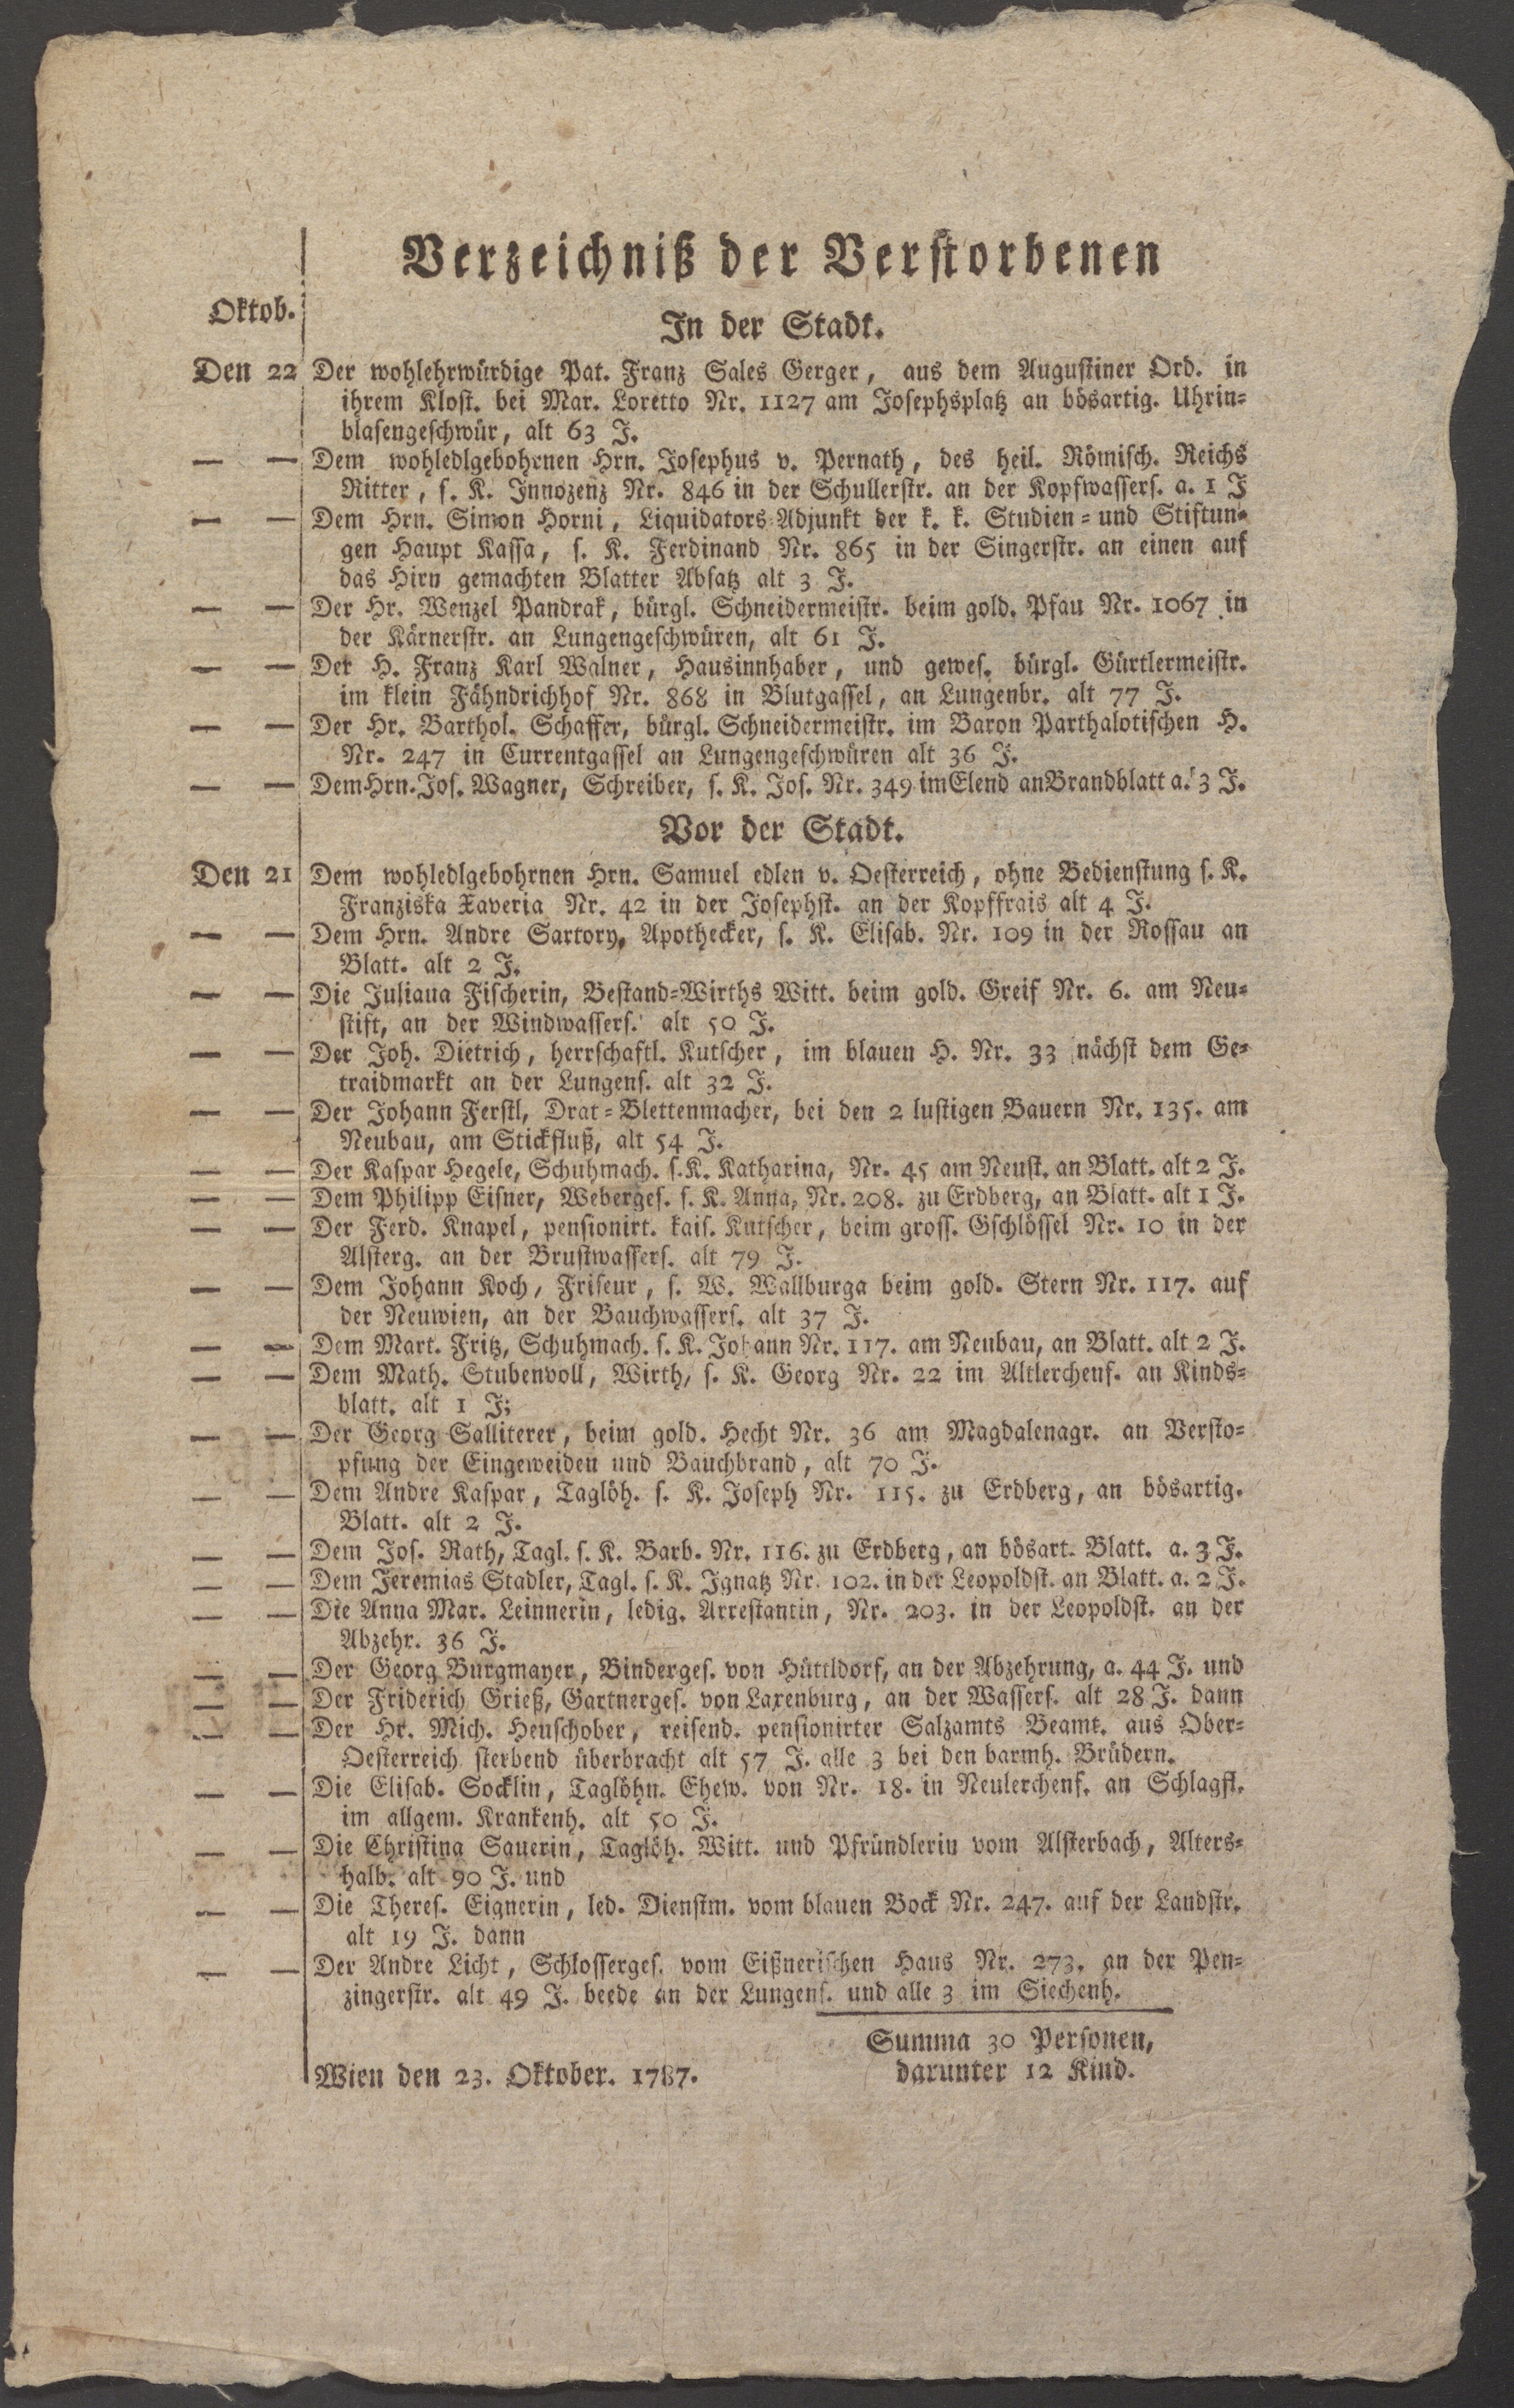 Verzeichniß der Verstorbenen
Oktob.
In der Stadt.
Den 22 Der wohlehrwürdige Pat. Franz Sales Gerger, aus dem Augustiner Ord. in
ihrem Klost. bei Mar. Loretto Nr. 1127 am Josephsplatz an bösartig. Uhrin-
blasengeschwür, alt 63 J.
— — Dem wohledlgebohrnen Hrn. Josephus v. Pernath, des heil. Römisch. Reichs
Ritter, s. K. Innozenz Nr. 846 in der Schullerstr. an der Kopfwassers. a. 1 J
— — Dem Hrn. Simon Horni, Liquidators-Adjunkt der k. k. Studien- und Stiftun-
gen Haupt Kassa, s. K. Ferdinand Nr. 865 in der Singerstr. an einen auf
das Hirn gemachten Blatter Absatz alt 3 J.
— — Der Hr. Wenzel Pandrak, bürgl. Schneidermeistr. beim gold. Pfau Nr. 1067 in
der Kärnerstr. an Lungengeschwüren, alt 61 J.
— — Der H. Franz Karl Walner, Hausinnhaber, und gewes. bürgl. Gürtlermeistr.
im klein Fähndrichhof Nr. 868 in Blutgassel, an Lungenbr. alt 77 J.
— — Der Hr. Barthol. Schaffer, bürgl. Schneidermeistr. im Baron Parthalotischen H.
Nr. 247 in Currentgassel an Lungengeschwüren alt 36 J.
— — Dem Hrn. Jos. Wagner, Schreiber, s. K. Jos. Nr. 349 im Elend an Brandblatt a. 3 J.
Vor der Stadt.
Den 21 Dem wohledlgebohrnen Hrn. Samuel edlen v. Oesterreich, ohne Bedienstung s. K.
Franziska Xaveria Nr. 42 in der Josephst. an der Kopffrais alt 4 J.
— — Dem Hrn. Andre Sartory, Apothecker, s. K. Elisab. Nr. 109 in der Rossau an
Blatt. alt 2 J.
— — Die Juliana Fischerin, Bestand-Wirths Witt. beim gold. Greif Nr. 6. am Neu-
stift, an der Windwassers. alt 50 J.
— — Der Joh. Dietrich, herrschaftl. Kutscher, im blauen H. Nr. 33 nächst dem Ge-
traidmarkt an der Lungens. alt 32 J.
— — Der Johann Ferstl, Drat-Blettenmacher, bei den 2 lustigen Bauern Nr. 135. am
Neubau, am Stickfluß, alt 54 J.
— — Der Kaspar Hegele, Schuhmach. s. K. Katharina, Nr. 45 am Neust. an Blatt. alt 2 J.
— — Dem Philipp Eisner, Weberges. s. K. Anna, Nr. 208. zu Erdberg, an Blatt. alt 1 J.
— — Der Ferd. Knapel, pensionirt. kais. Kutscher, beim gross. Gschlössel Nr. 10 in der
Alsterg. an der Brustwassers. alt 79 J.
— — Dem Johann Koch, Friseur, s. W. Wallburga beim gold. Stern Nr. 117. auf
der Neuwien, an der Bauchwassers. alt 37 J.
— — Dem Mart. Fritz, Schuhmach. s. K. Johann Nr. 117. am Neubau, an Blatt. alt 2 J.
— — Dem Math. Stubenvoll, Wirth, s. K. Georg Nr. 22 im Altlerchenf. an Kinds-
blatt. alt 1 J;
— — Der Georg Salliterer, beim gold. Hecht Nr. 36 am Magdalenagr. an Versto-
pfung der Eingeweiden und Bauchbrand, alt 70 J.
— — Dem Andre Kaspar, Taglöh. s. K. Joseph Nr. 115. zu Erdberg, an bösartig.
Blatt. alt 2 J.
— — Dem Jos. Rath, Tagl. s. K. Barb. Nr. 116. zu Erdberg, an bösart. Blatt. a. 3 J.
— — Dem Jeremias Stadler, Tagl. s. K. Ignatz Nr. 102. in der Leopoldst. an Blatt. a. 2 J.
— — Die Anna Mar. Leinnerin, ledig. Arrestantin, Nr. 203. in der Leopoldst. an der
Abzehr. 36 J.
— — Der Georg Burgmayer, Binderges. von Hüttldorf, an der Abzehrung, a. 44 J. und
— — Der Friderich Grieß, Gartnerges. von Laxenburg, an der Wassers. alt 28 J. dann
— — Der Hr. Mich. Heuschober, reisend. pensionirter Salzamts Beamt. aus Ober-
Oesterreich sterbend überbracht alt 57 J. alle 3 bei den barmh. Brüdern.
— — Die Elisab. Socklin, Taglöhn. Ehew. von Nr. 18. in Neulerchenf. an Schlagfl.
im allgem. Krankenh. alt 50 J.
— — Die Christina Sauerin, Taglöh. Witt. und Pfründlerin vom Alsterbach, Alters-
halb. alt 90 J. und
— — Die Theres. Eignerin, led. Dienstm. vom blauen Bock Nr. 247. auf der Landstr.
alt 19 J. dann
— — Der Andre Licht, Schlosserges. vom Eißnerischen Haus Nr. 273. an der Pen-
zingerstr. alt 49 J. beede an der Lungens. und alle 3 im Siechenh.
Summa 30 Personen,
darunter 12 Kind.
Wien den 23. Oktober. 1787.